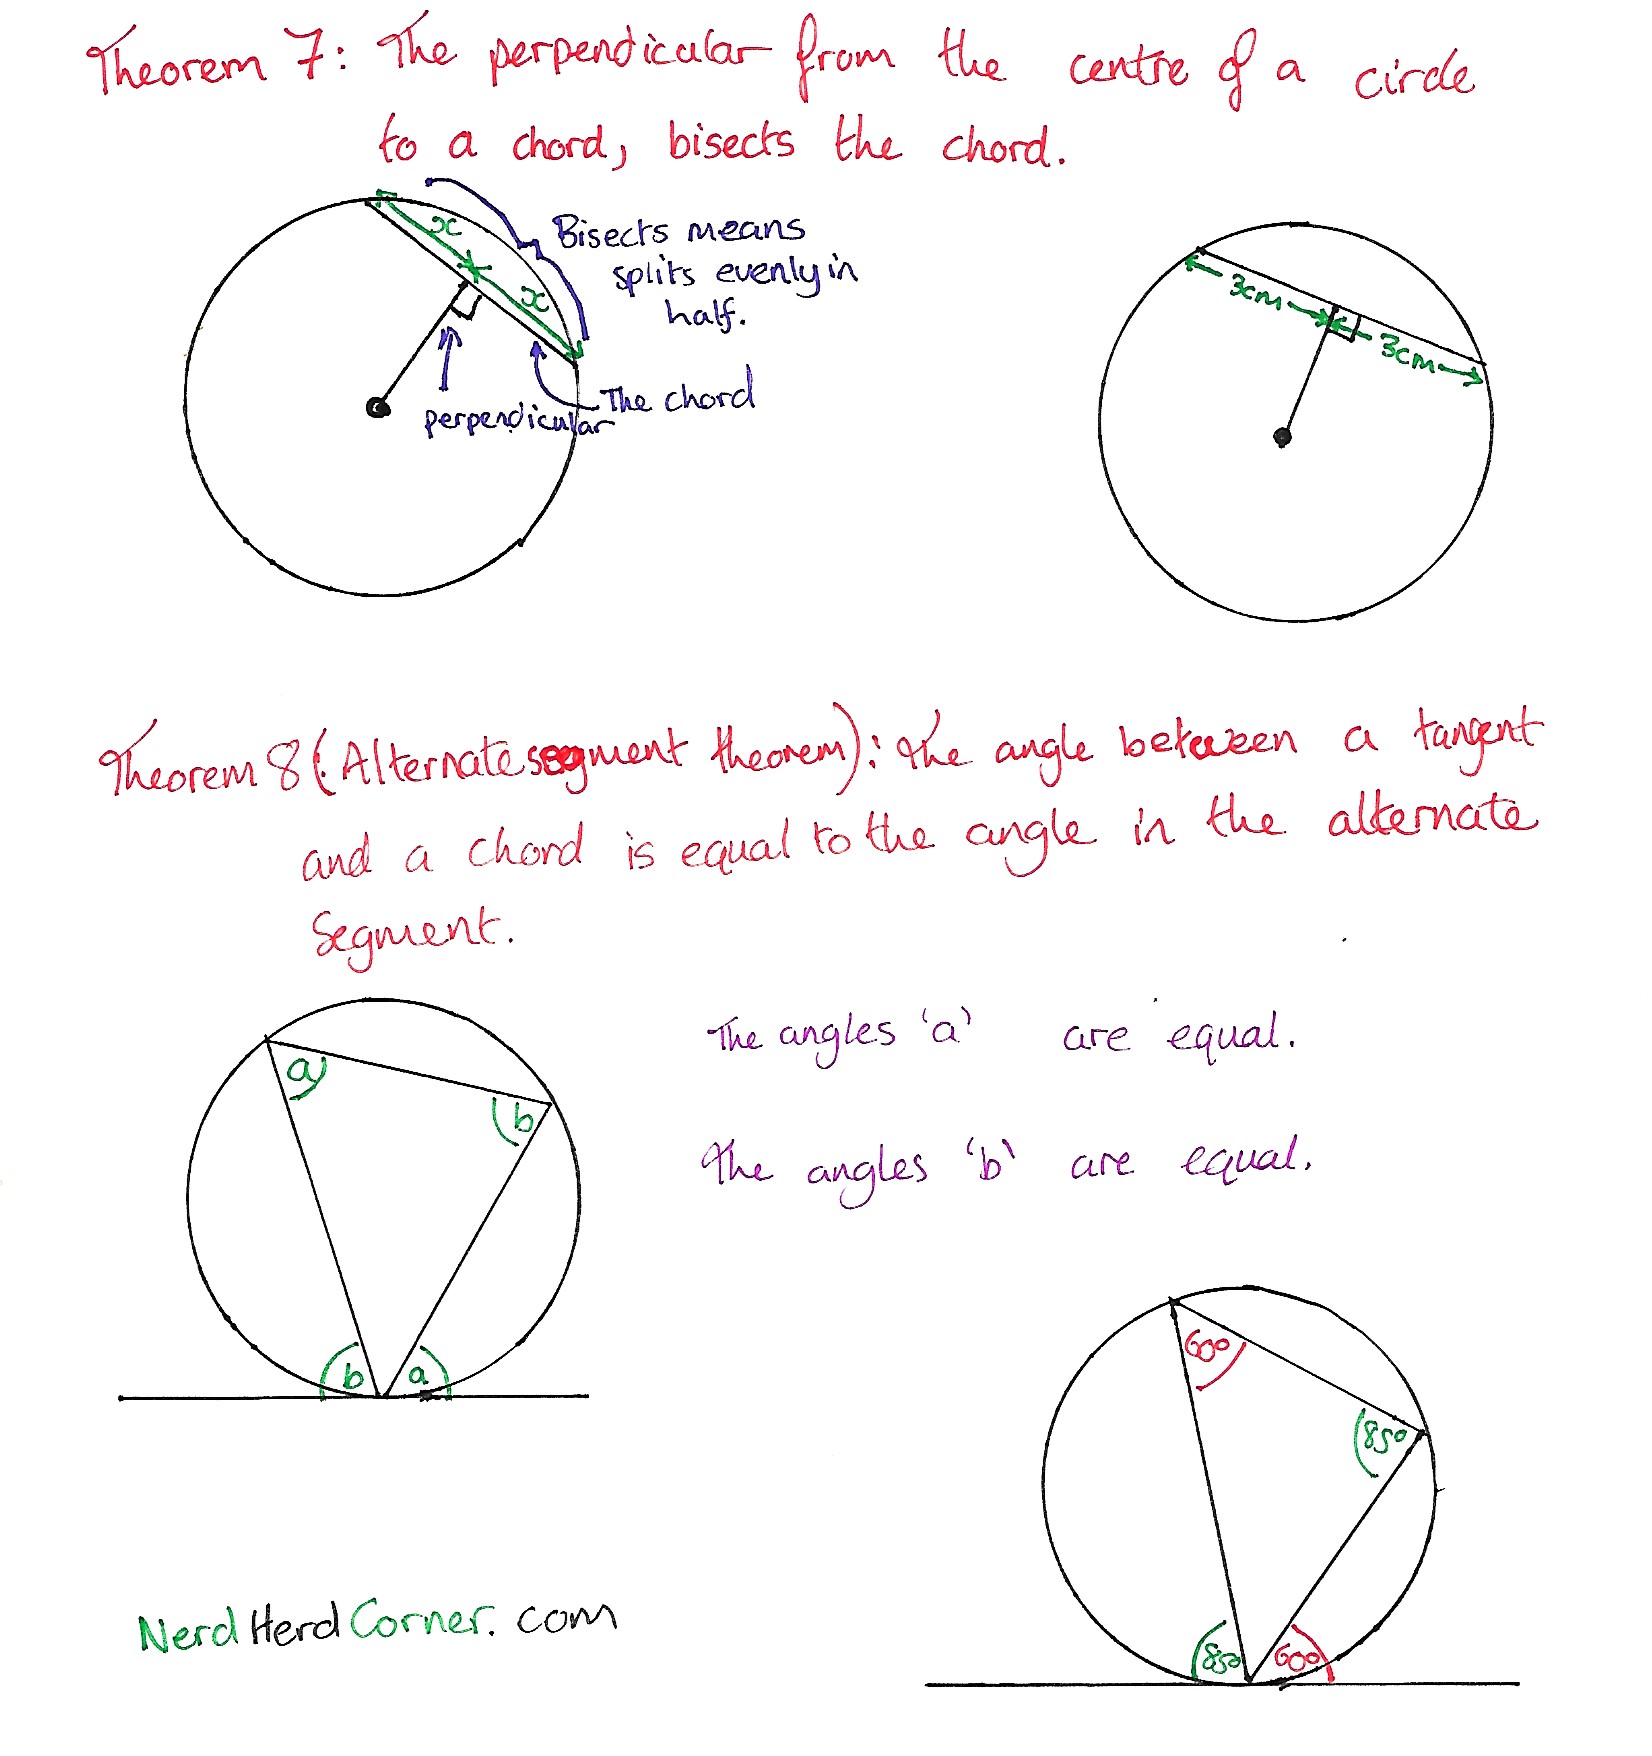 Theorem 7: The perpendicular from the centre of a circle
to a chord, bisects the chord.
x
x
Bisects means
splits evenly in
half.
perpendicular
The chord
3cm
3cm
Theorem 8 (Alternate segment theorem): The angle between a tangent
and a chord is equal to the angle in the alternate
Segment.
a
b
b
a
The angles 'a' are equal.
The angles 'b' are equal.
60°
85°
85°
60°
NerdHerdCorner.com